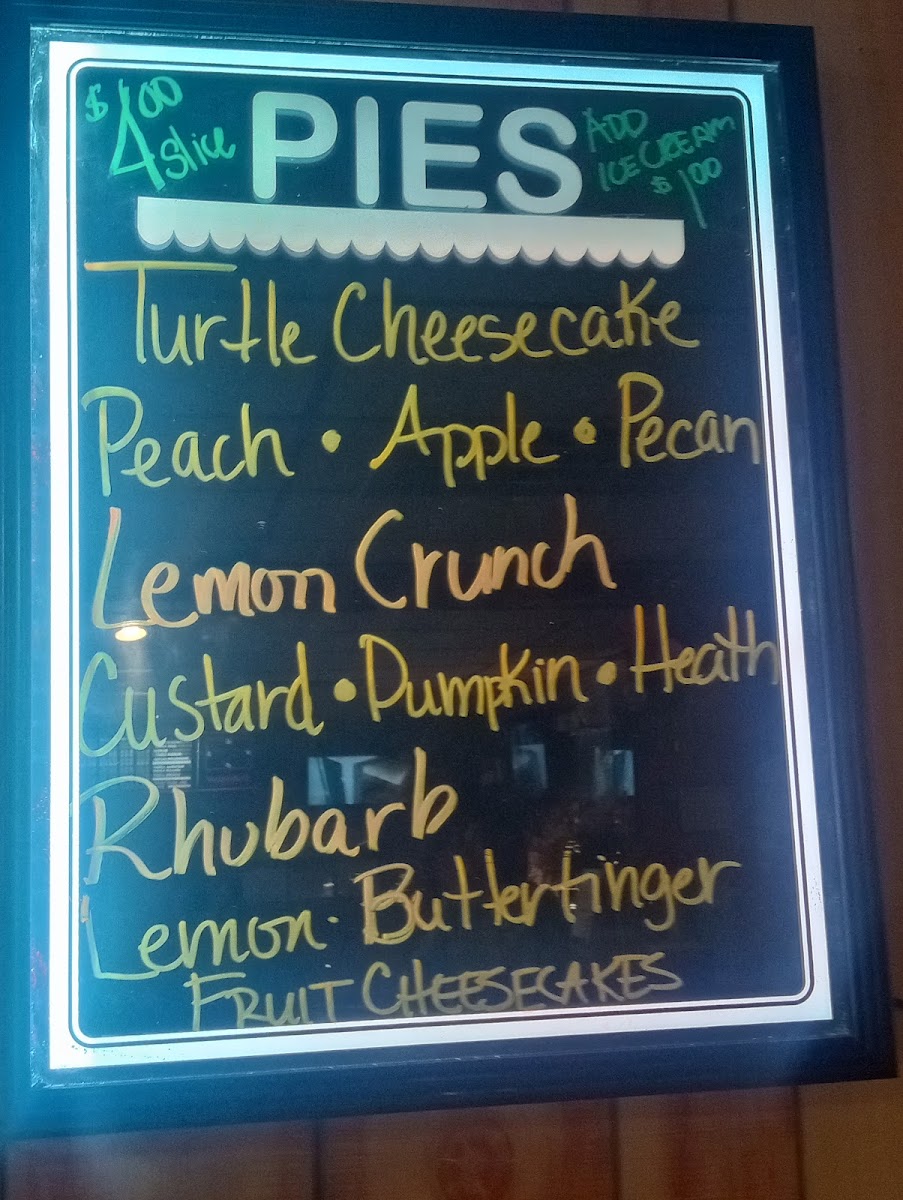 $4.00 slice
PIES
ADD
ICE CREAM
$1.00
Turtle Cheesecake
Peach • Apple • Pecan
Lemon Crunch
Custard • Pumpkin • Heath
Rhubarb
Lemon · Butterfinger
FRUIT CHEESECAKES